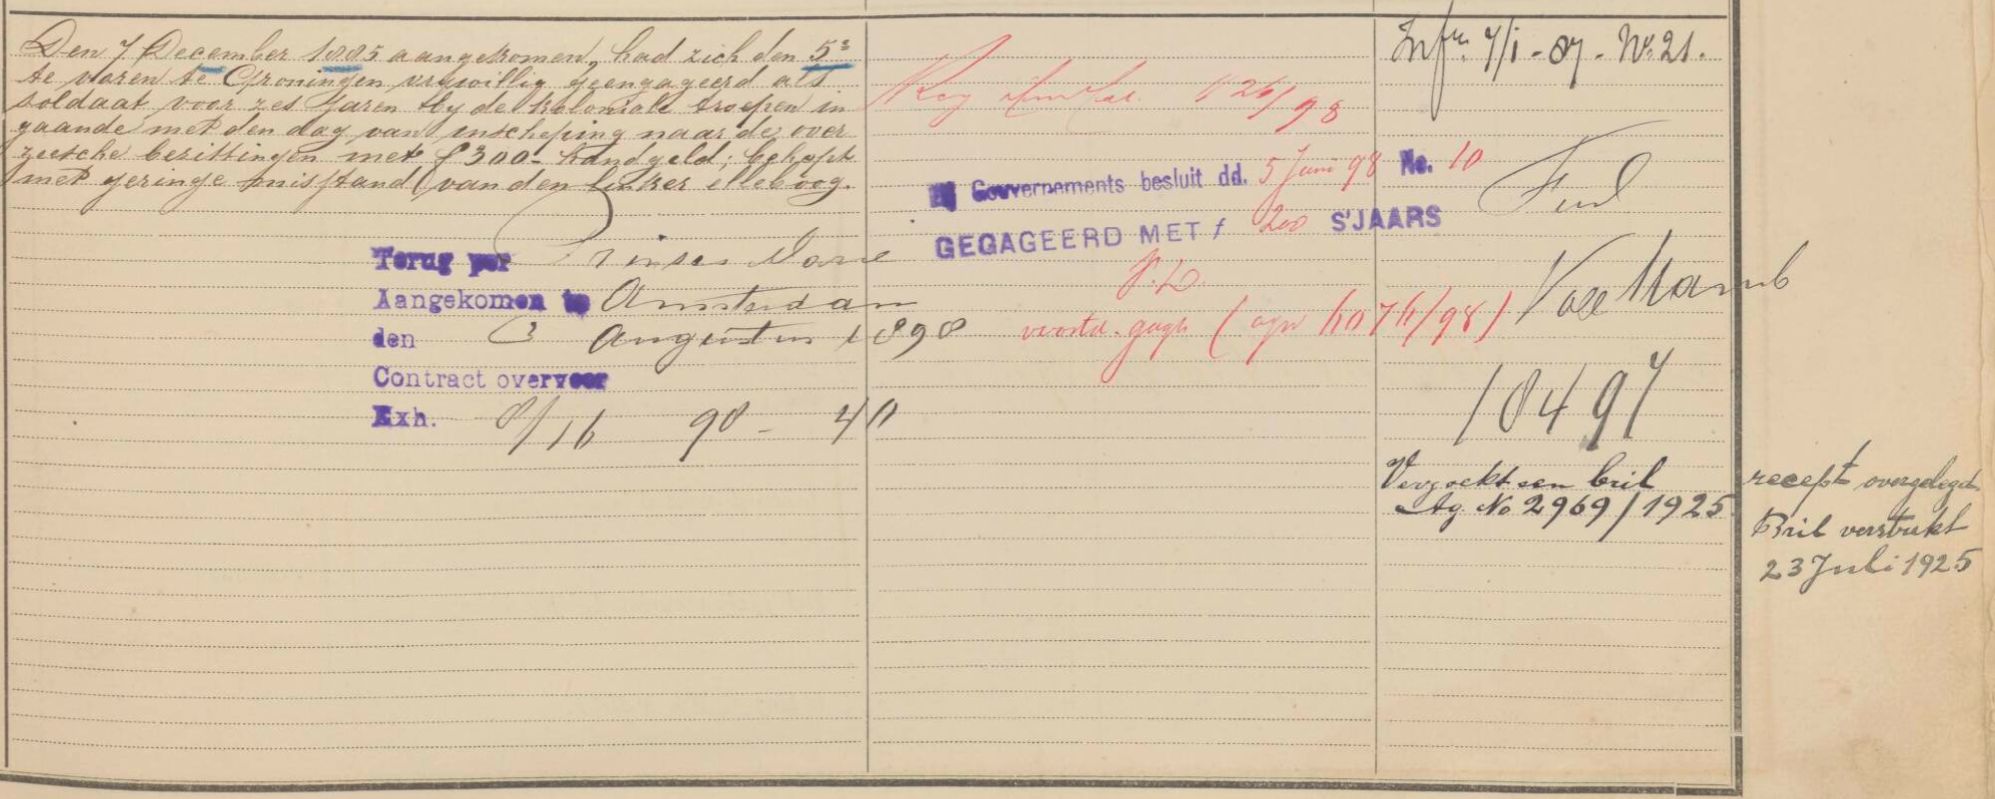 Den 7 December 1885 aangekomen, had zich den 5e
te voren te Groningen vrijwillig geengageerd als
soldaat voor zes jaren bij de koloniale troepen in
gaande met den dag van inscheping naar de over
zeesche bezittingen met f 300.- handgeld; behept
met geringe misstand van den linker elleboog.
Terug per Prinses Marie
Aangekomen te Amsterdam
den 3 Augustus 1898
Contract overvoer
Exh. 8/16 98 - 40
Gouvernements besluit dd. 5 Juni 98 No. 10
GEGAGEERD MET f 200 S'JAARS
P.D.
gage (
/98)
Inf. 7/1 - 87 - No. 21.
10497
Verzoekt een bril
Ag No 2969/1925
recept overgelegd
Bril verstrekt
23 Juli 1925